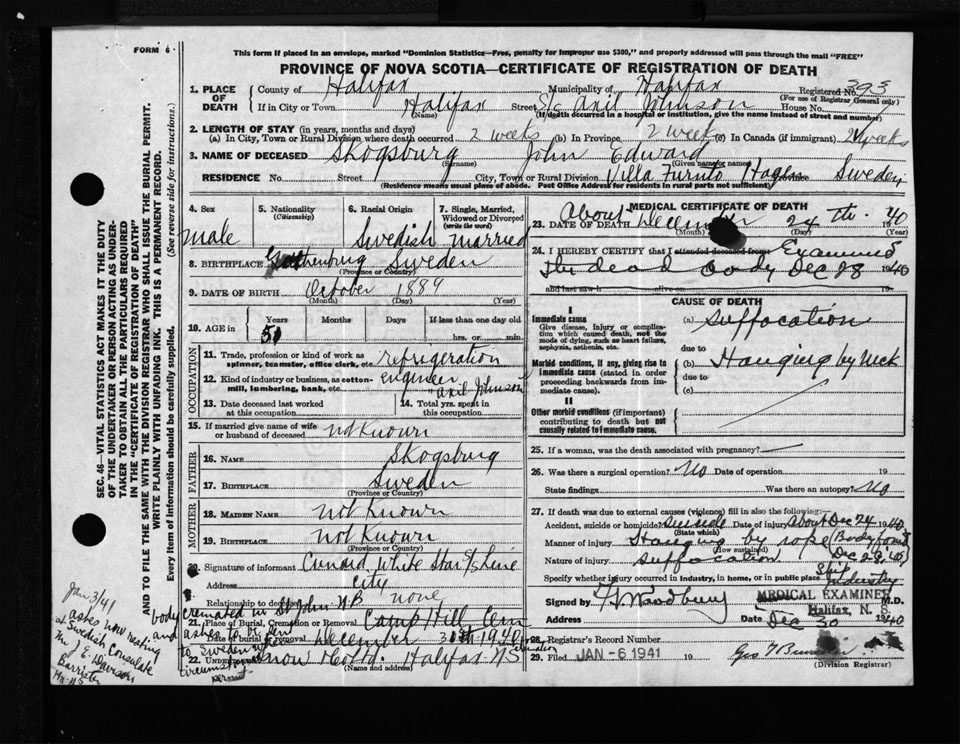 FORM 6
This form if placed in an envelope, marked "Dominion Statistics—Free, penalty for improper use $300," and properly addressed will pass through the mail "FREE"
PROVINCE OF NOVA SCOTIA—CERTIFICATE OF REGISTRATION OF DEATH
1. PLACE OF DEATH County of Halifax Municipality of Halifax Registered No. 393
(For use of Registrar General only)
If in City or Town Halifax Street S/S Axil Johnson House No.
(Name) (If death occurred in a hospital or institution, give the name instead of street and number)
2. LENGTH OF STAY (in years, months and days)
(a) In City, Town or Rural Division where death occurred 2 weeks (b) In Province 2 weeks (c) In Canada (if immigrant) 2 weeks
3. NAME OF DECEASED Skogsburg John Edward
(Surname) (Given name or names)
RESIDENCE No. Street City, Town or Rural Division Villa Furuto Hagen Province Sweden
(Residence means usual place of abode. Post Office Address for residents in rural parts not sufficient)
4. Sex Male
5. Nationality (Citizenship)
6. Racial Origin Swedish
7. Single, Married, Widowed or Divorced (write the word) Married
8. BIRTHPLACE Gothenburg Sweden
(Province or Country)
9. DATE OF BIRTH October 1889
(Month) (Day) (Year)
10. AGE in Years Months Days If less than one day old
51 hrs. or min.
OCCUPATION
11. Trade, profession or kind of work as spinner, teamster, office clerk, etc. refrigeration
12. Kind of industry or business, as cotton-mill, lumbering, bank, etc. engineer Axil Johnson
13. Date deceased last worked at this occupation
14. Total yrs. spent in this occupation
15. If married give name of wife or husband of deceased not known
FATHER
16. NAME Skogsburg
17. BIRTHPLACE Sweden
(Province or Country)
MOTHER
18. MAIDEN NAME not known
19. BIRTHPLACE not known
(Province or Country)
20. Signature of informant Cunard White Star S/S Line
Address City
Relationship to deceased none
21. Place of Burial, Cremation or Removal Camp Hill Cem
Date of burial or removal December 30 1940
22. UNDERTAKER Snow Co Ltd. Halifax NS
(Name and address)
body cremated in St John NB
and ashes to be sent
to Sweden when
circumstances
permit
Jan 3/41
ashes now resting
at Swedish Consulate
J E Davison
Barrister
SEC. 46—VITAL STATISTICS ACT MAKES IT THE DUTY
OF THE UNDERTAKER OR PERSON ACTING AS UNDER-
TAKER TO OBTAIN ALL THE PARTICULARS REQUIRED
IN THE "CERTIFICATE OF REGISTRATION OF DEATH"
AND TO FILE THE SAME WITH THE DIVISION REGISTRAR WHO SHALL ISSUE THE BURIAL PERMIT.
WRITE PLAINLY WITH UNFADING INK. THIS IS A PERMANENT RECORD.
Every item of information should be carefully supplied. (See reverse side for instructions.)
MEDICAL CERTIFICATE OF DEATH
23. DATE OF DEATH About December 24th 1940
(Month) (Day) (Year)
24. I HEREBY CERTIFY that I attended deceased from Examined
the dead body Dec 28 1940
and last saw h alive on 19
CAUSE OF DEATH
I
Immediate cause (a) Suffocation
Give disease, injury or complication which caused death, not the mode of dying, such as heart failure, asphyxia, asthenia, etc.
due to
Morbid conditions, if any, giving rise to immediate cause (stated in order proceeding backwards from immediate cause). (b) Hanging by neck
due to
(c)
II
Other morbid conditions (if important) contributing to death but not causally related to immediate cause.
25. If a woman, was the death associated with pregnancy?
26. Was there a surgical operation? No Date of operation 19
State findings Was there an autopsy? No
27. If death was due to external causes (violence) fill in also the following:
Accident, suicide or homicide? Suicide Date of injury About Dec 24 1940
(State which)
Manner of injury Hanging by rope (Body found Dec 28, 40)
(How sustained)
Nature of injury Suffocation
Specify whether injury in Industry, in home, or in public place Ship Industry
Signed by F. V. Woodbury M.D.
MEDICAL EXAMINER
Halifax, N. S.
Address Date Dec 30 1940
28. Registrar's Record Number
29. Filed JAN - 6 1941 19
(Division Registrar)